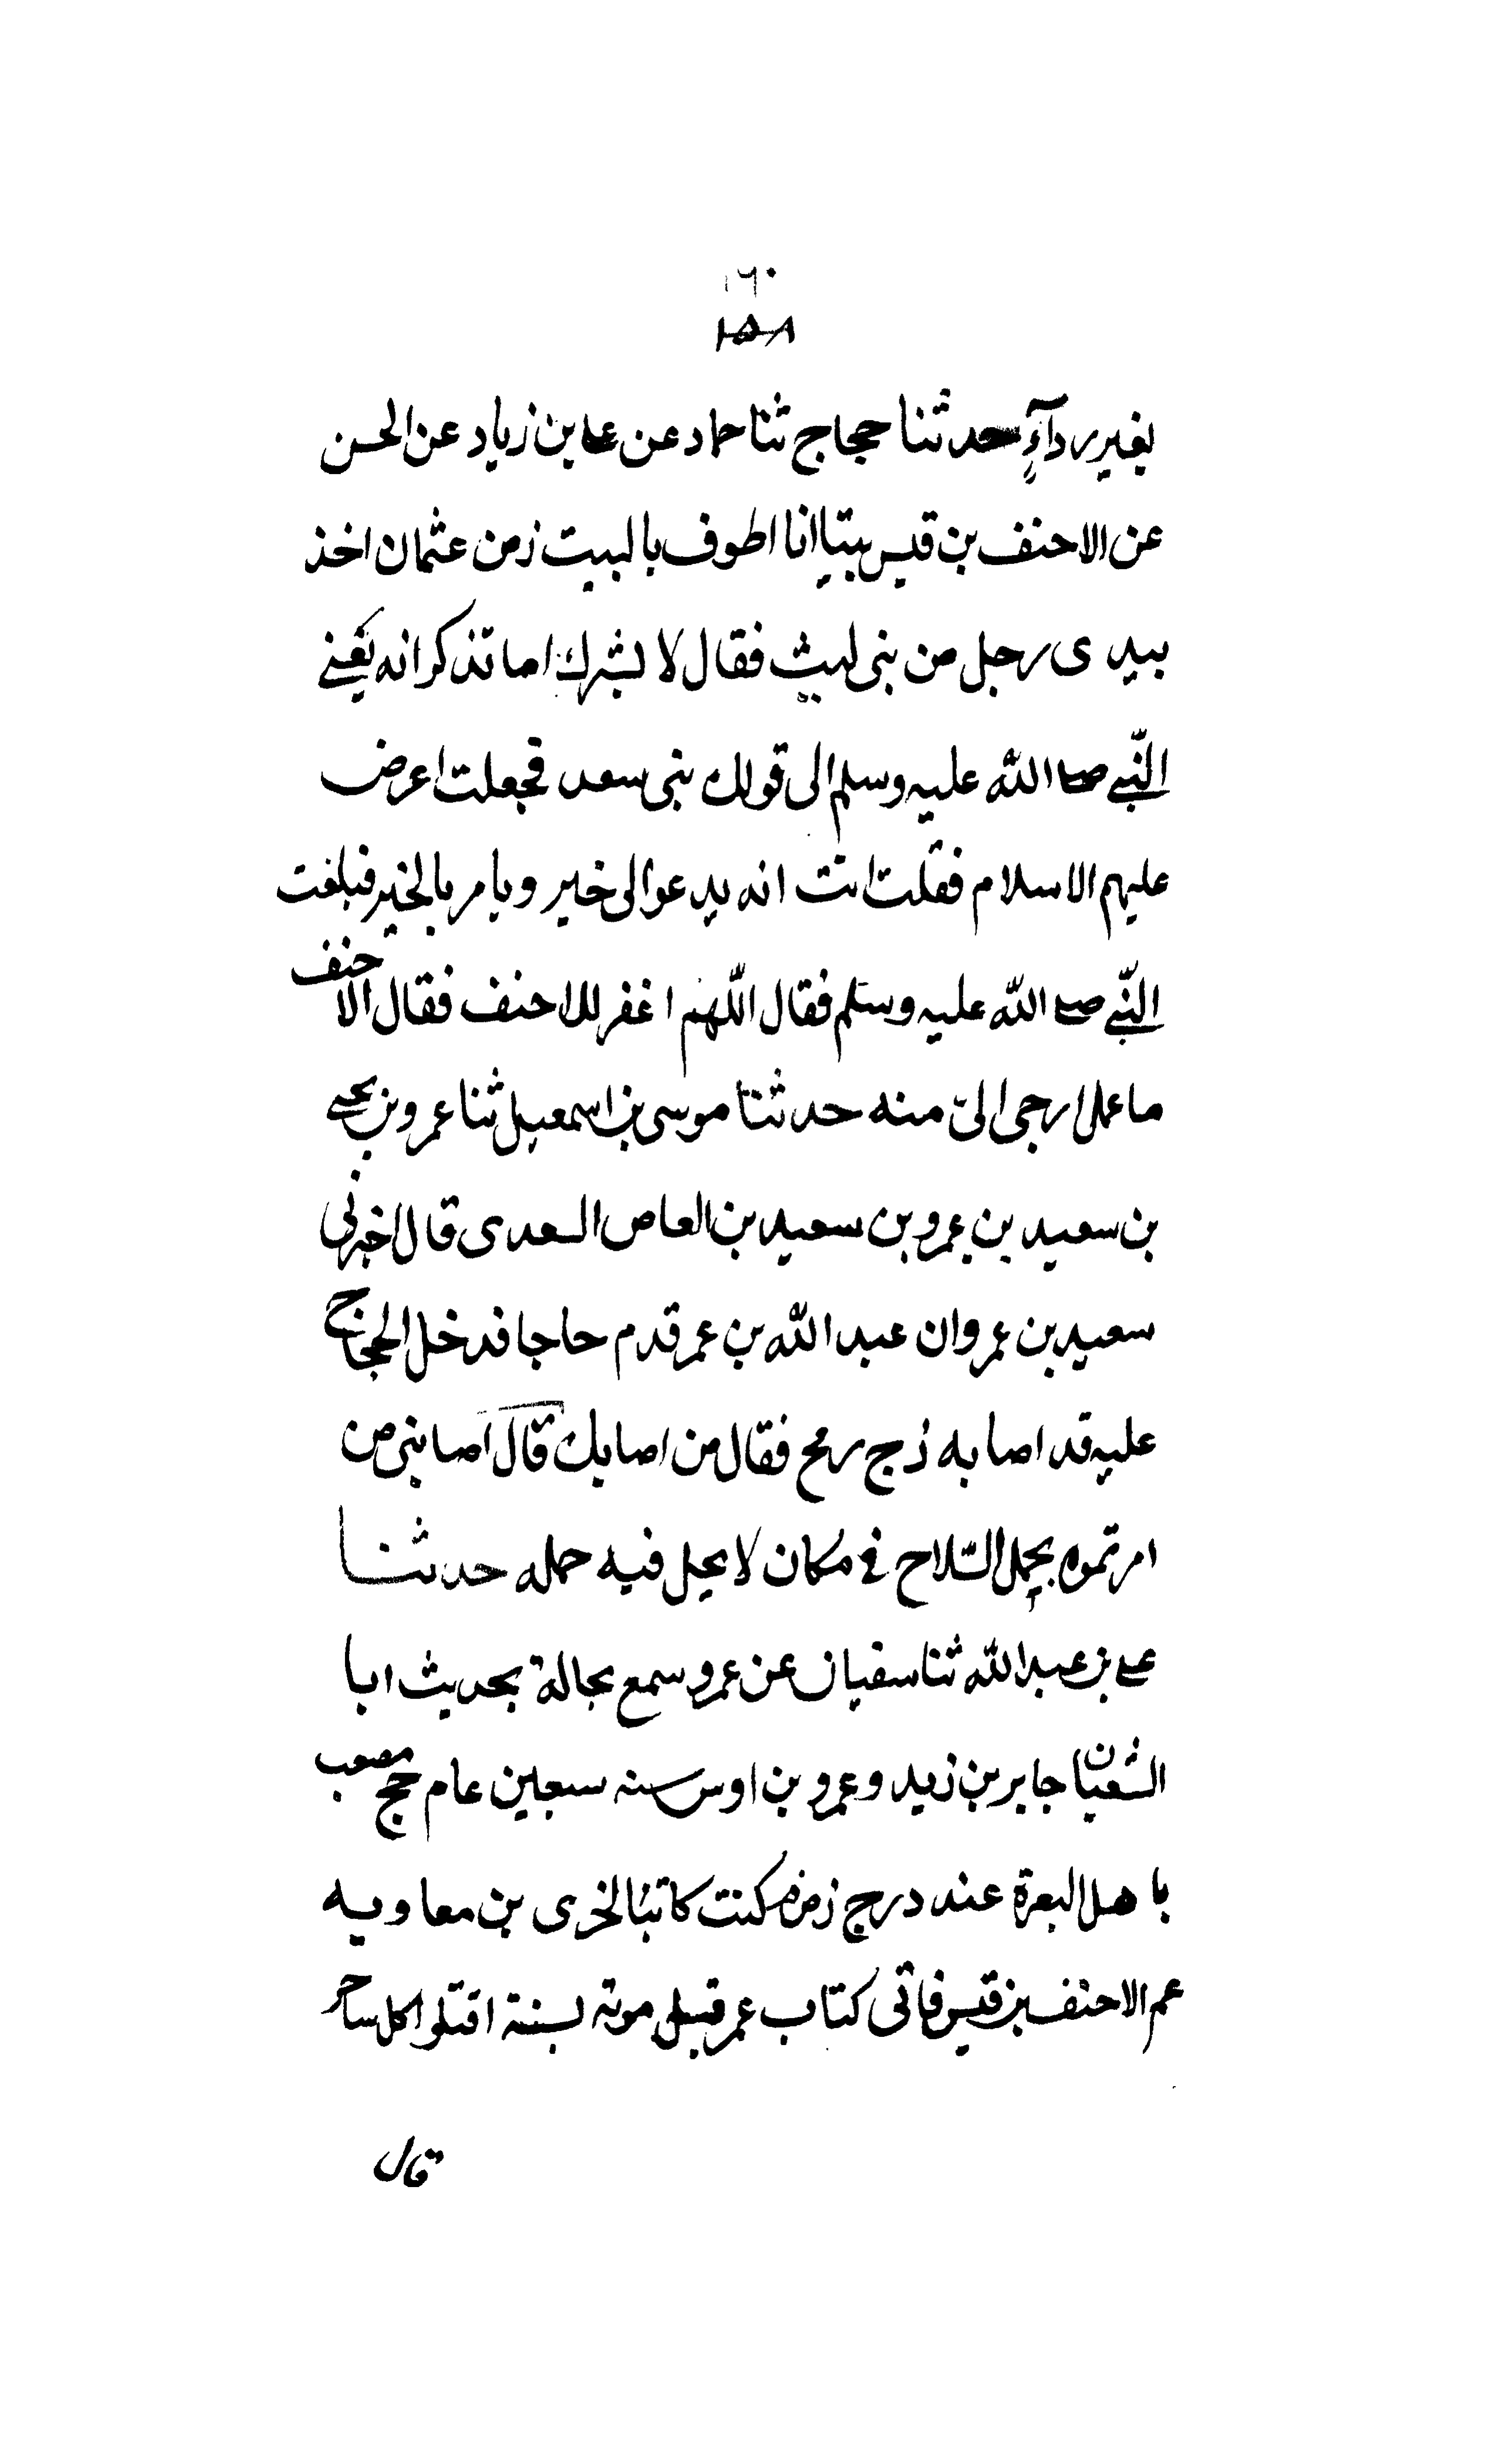 ١٦٠
١٥٨
بغير رداءٍ حدثنا حجاج ثنا حماد عن على بن زياد عن الحسن
عن الاحنف بن قيس بينا انا اطوف بالبيت زمن عثمان اخذ
بيدى رجل من بنى ليث فقال لا ابشرك اما تذكر انه يعنے
النّبے صلى الله عليه وسلم الى قولك بنى سعد فجعلت اعرض
عليهم الاسلام فقلت انت انه يدعو الى خير ويامر بالخير فبلغت
النّبے صلى الله عليه وسلم فقال اللّهم اغفر للاحنف فقال الاحنف
ما عملى ارجى الىّ منه حدثنا موسى بن اسمعيل ثنا عمرو بن يحيى
بن سعيد بن عمرو بن سعيد بن العاص السعدى قال اخبرنى
سعيد بن عمرو ان عبد الله بن عمر قدم حاجا فدخل الحجاج
عليه قد اصابه زج رمح فقال من اصابك قال اصابنى من
امرتموه بحمل السّلاح فى مكان لا يحل فيه حمله حدثنا
على بن عبد الله ثنا سفيان عن عمرو سمع بجالة يحديث ابا
الشعبان جابر بن زيد وعمرو بن اوس سنه سبعين عام حج مصعب
باهل البصرة عند درج زمزم كنت كاتبا لجزى بن معاويه
عم الاحنف بن قيس فاتى كتاب عمر قبل موته بسنة اقتلوا كل ساحر
قال